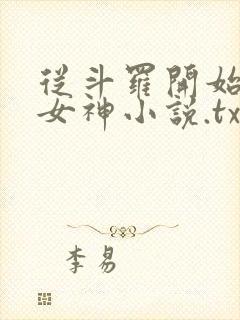 從斗羅開始
女神小說.tx
李易